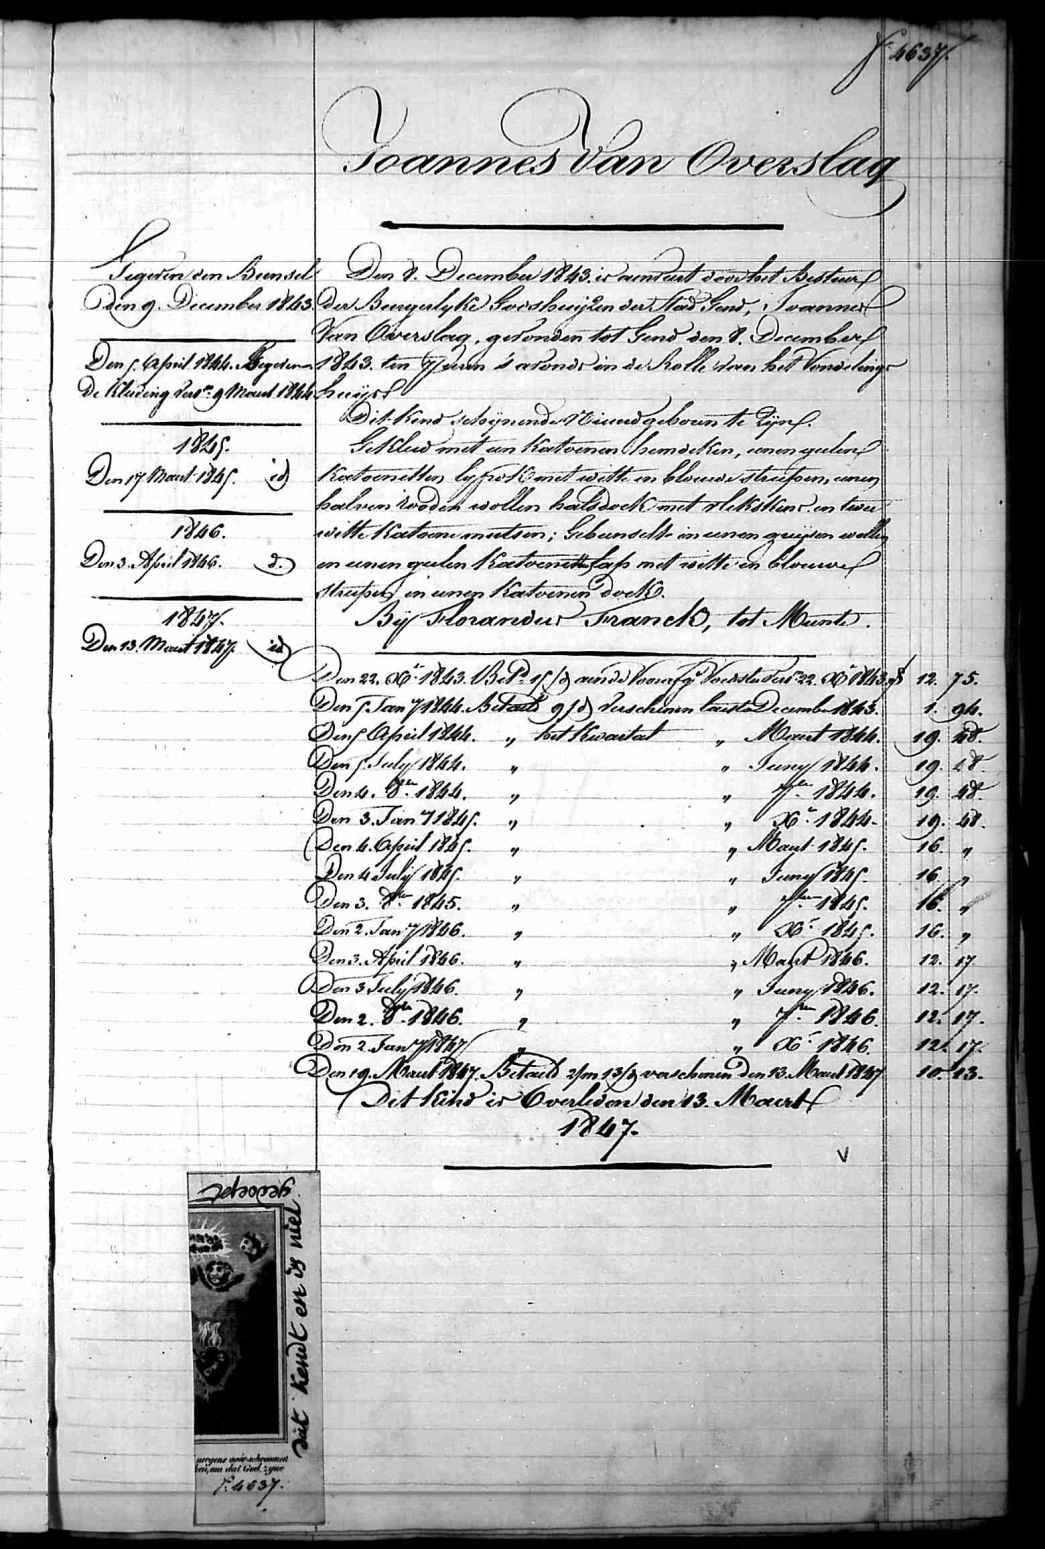 F° 4637.
Joannes Van Overslag
Gegeven een Bunsel
den 9. December 1843.
Den 5. April 1844. Gegeven
de Kleding vers. 9 Maart 1844
1845.
Den 17 Maart 1845. id
1846.
Den 3. April 1846. d.
1847.
Den 13. Maart 1847. id
Den 8. December 1843. is aenveert door het Bestuer
der Burgerlyke Godshuyzen der Stad Gend, Joannes
Van Overslag, gevonden tot Gend den 8. December
1843. ten 7 uren 's avonds in de Rolle van het Vondelings
huys
Dit Kend schynende Nieuwgeboren te zyn.
Gekleed met een Katoenen hemdeken, eenen geelen
Katoenetten lyfrok met witte en blauwe streepen, eenen
halven rooden wollen halsdoek met vlekskens en twee
witte Katoene mutsen; Gebunselt in eenen gryzen wollen
en eenen geelen Katoenette lap met witte en blauwe
streepen, in eenen Katoenen doek.
By Florandus Franck, tot Munte.
Den 22. Xr 1843. Bet. 15/d aen de Voorsz. Voedster vers. 22. Xr 1843. 12. 75.
Den 5. Jany 1844. Betaeld 9/d Verschenen laeste December 1843. 1. 94.
Den 5 April 1844. „ het Kwartael „ Maert 1844. 19. 48.
Den 5. July 1844. „ „ Juny 1844. 19. 48.
Den 4. 8ber 1844. „ „ 7ber 1844. 19. 48.
Den 3. Jany 1845. „ „ Xr 1844. 19. 48.
Den 4. April 1845. „ „ Maert 1845. 16. „
Den 4 July 1845. „ „ Juny 1845. 16. „
Den 3. 8br 1845. „ „ 7ber 1845. 16. „
Den 2. Jany 1846. „ „ Xr 1845. 16. „
Den 3. April 1846. „ „ Maert 1846. 12. 17.
Den 3 July 1846. „ „ Juny 1846. 12. 17.
Den 2. 8ber 1846. „ „ 7ber 1846. 12. 17.
Den 2. Jany 1847 „ „ Xr 1846. 12. 17.
Den 19. Maert 1847. Betaeld 2/m 13/d verschenen den 13. Maert 1847 10. 13.
Dit Kind is Overleden den 13. Maert
1847.
V
dit kendt en is niet
gedoept
F° 4637.